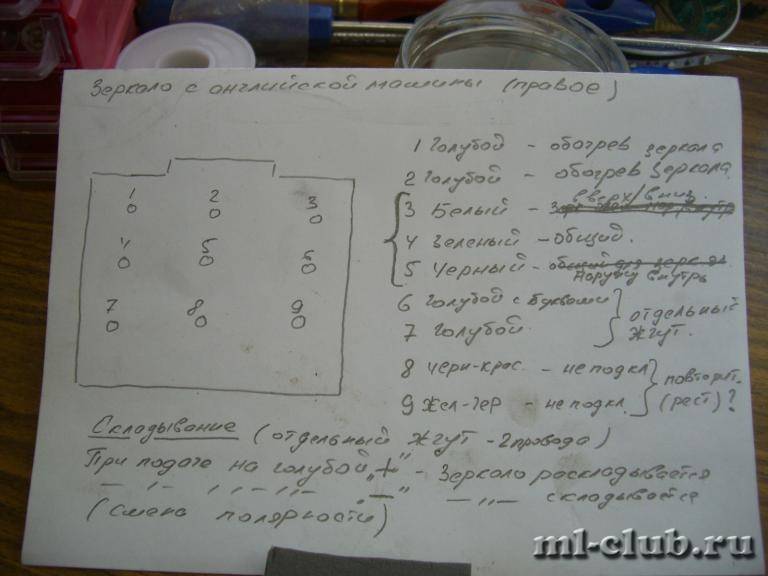 Зеркало с английской машины (правое)
1 2 3
4 5 6
7 8 9
1 Голубой - обогрев зеркала
2 Голубой - обогрев зеркала
вверх/вниз
3 Белый -
4 Зеленый - общий.
5 Черный - общий для зеркала
Наружу внутрь
6 Голубой с буквами
7 Голубой.
отдельный
жгут.
8 черн-крас. - не подкл
9 Жел-чер - не подкл.
повторит.
(рест)?
Складывание (отдельный жгут - 2 провода)
При подаче на голубой „+" - Зеркало раскладывается
— „— „ „—„— „—" — „— складывается
(смена полярности)
ml-club.ru